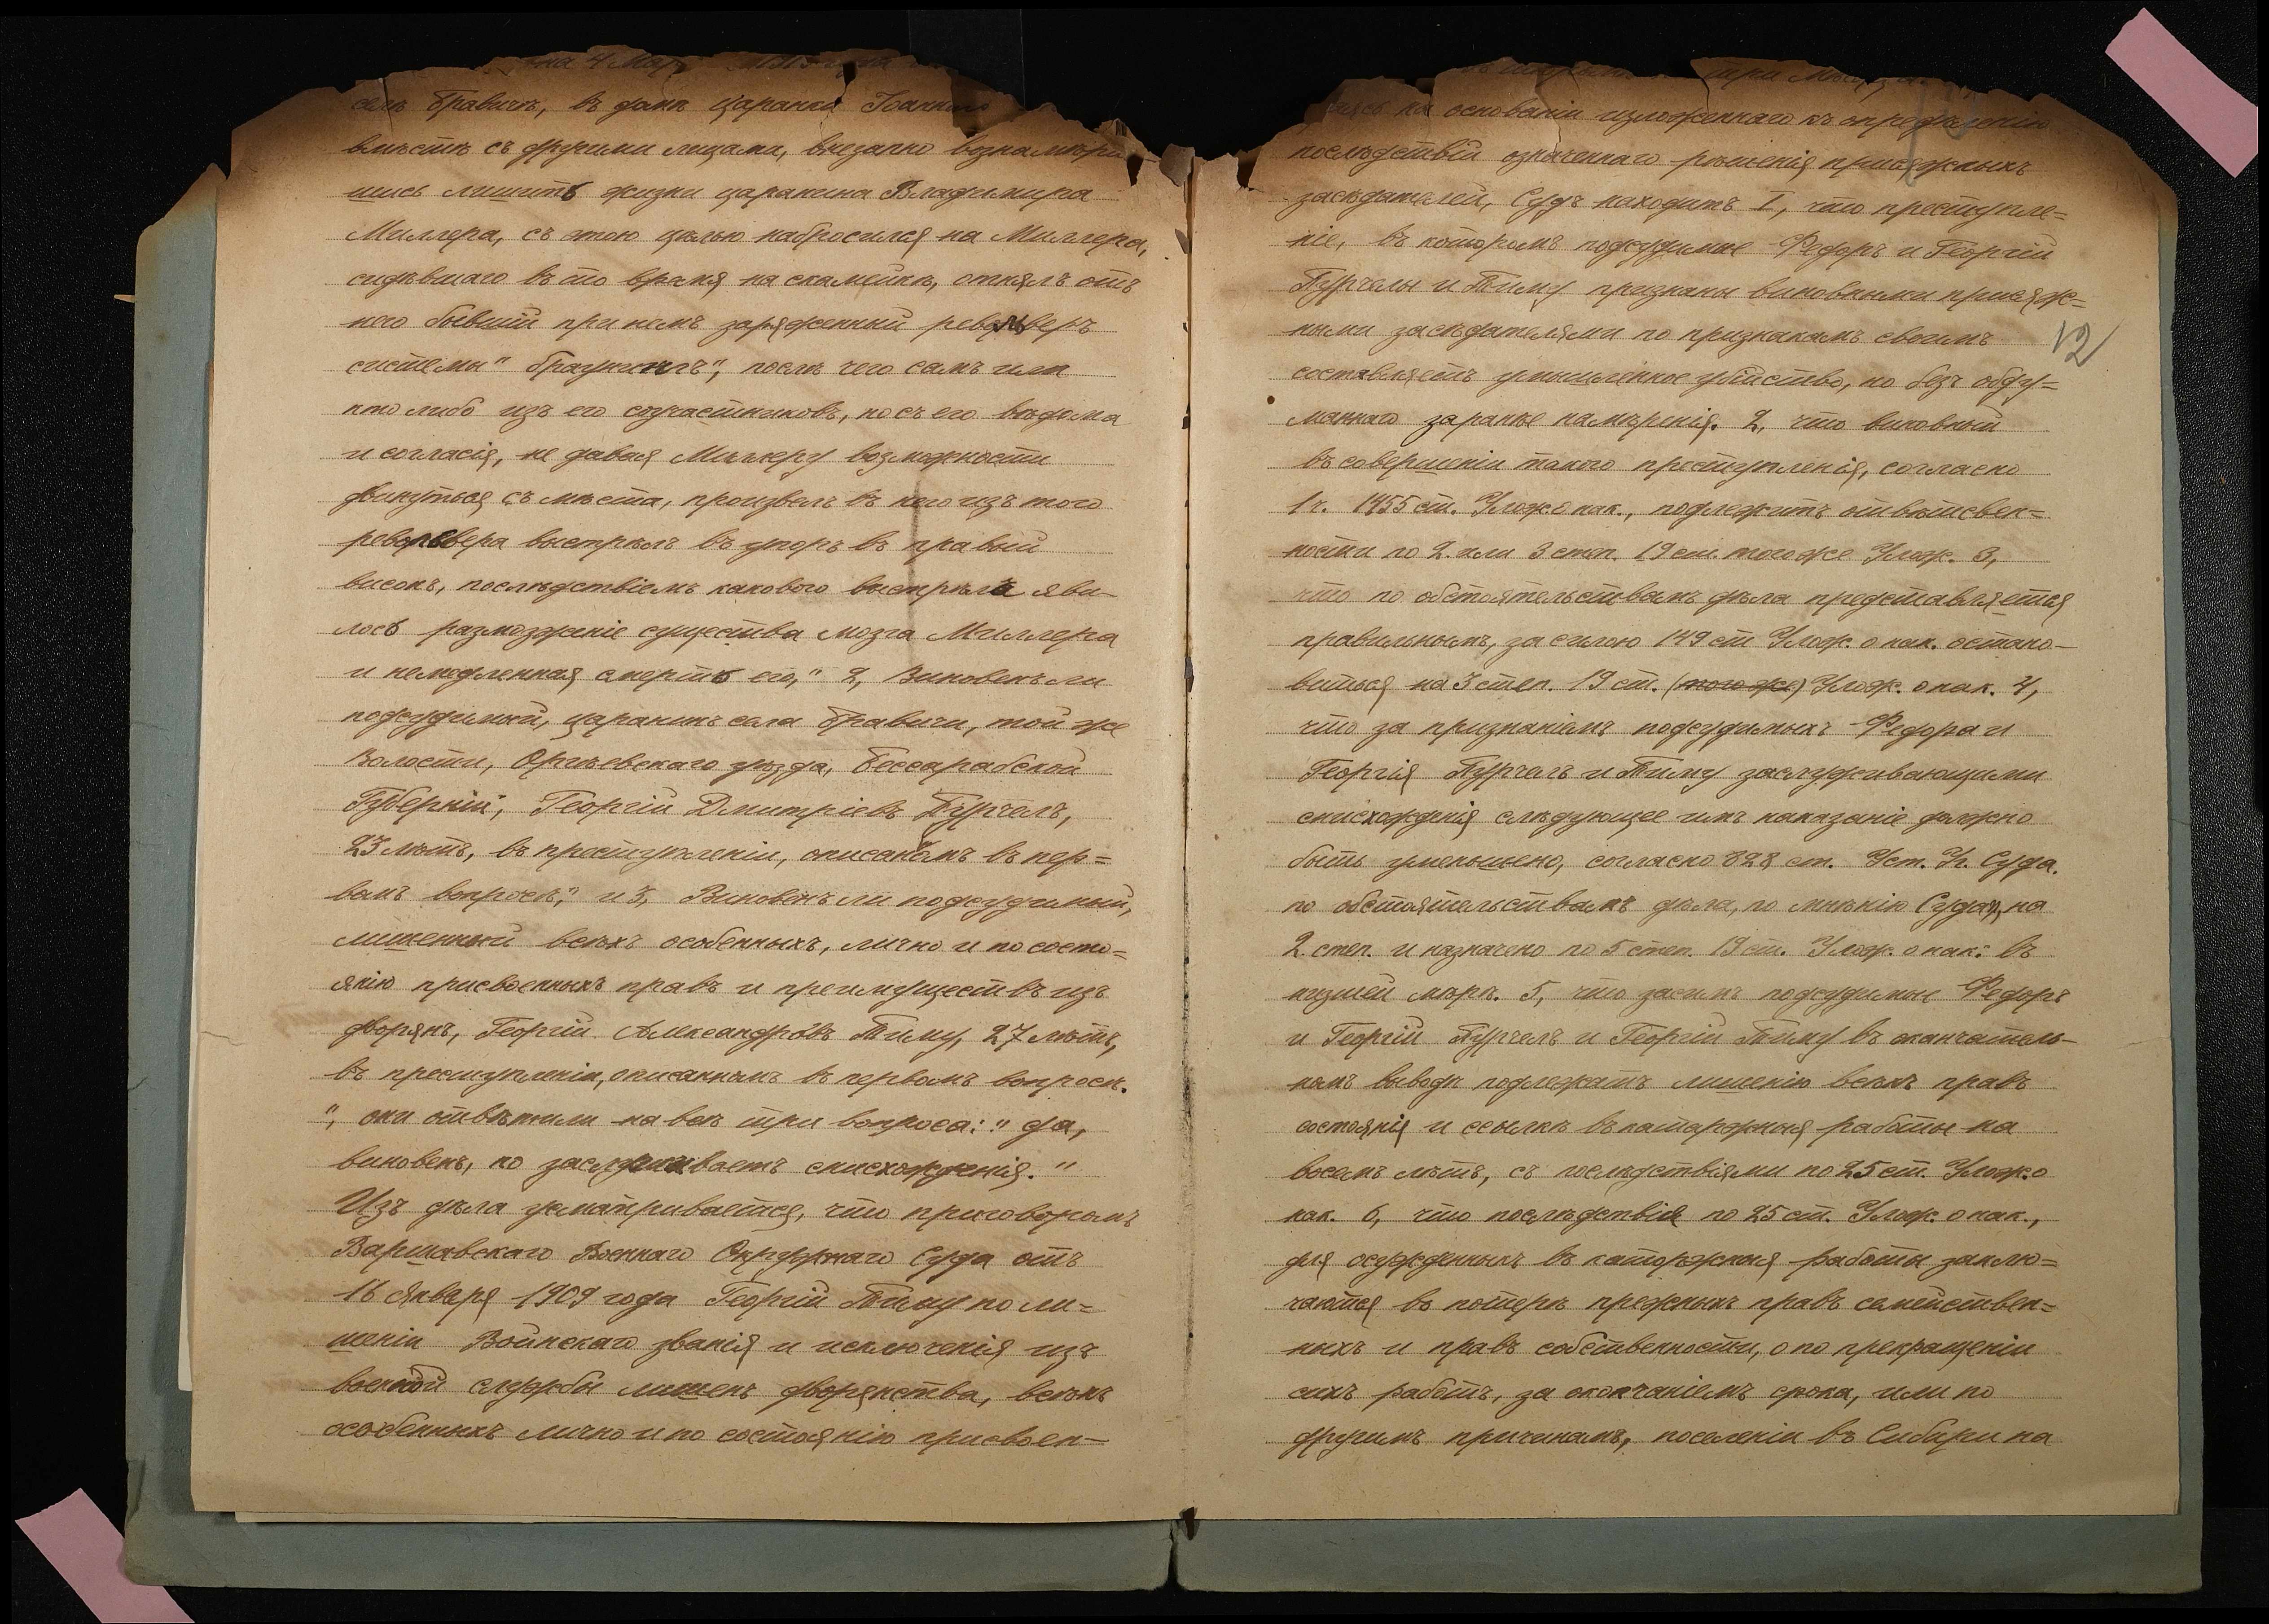 на 4 Мар
селѣ Бравичѣ, въ домѣ царанки
вмѣстѣ съ другими лицами, внезапно вознамѣри-
шись лишить жизни царанина Владимира
Миллера, съ этою цѣлью набросился на Миллера,
сидѣвшаго въ то время на скамейкѣ, отнялъ отъ
него бывшій при немъ заряженный револьверъ
системы "браунингъ", послѣ чего самъ или
кто либо изъ его соучастниковъ, но съ его вѣдома
и согласія, не давая Миллеру возможности
двинуться съ мѣста, произвелъ въ него изъ того
револьвера выстрѣлъ въ упоръ въ правый
високъ, послѣдствіемъ какового выстрѣла яви-
лось размозженіе существа мозга Миллера
и немедленная смерть его," 2, Виновенъ ли
подсудимый, царанинъ села Бравичи, той же
Волости, Оргѣевскаго уѣзда, Бессарабской
Губерніи, Георгій Дмитріевъ Бурчелъ,
23 лѣтъ, въ преступленіи, описаномъ въ пер=
вомъ вопросѣ," и 3, Виновенъ ли подсудимый,
лишенный всѣхъ особенныхъ, лично и по состо=
янію присвоенныхъ правъ и преимуществъ изъ
дворянъ, Георгій Александровъ Тиму, 27 лѣтъ,
въ преступленіи, описанномъ въ первомъ вопросѣ.
", они отвѣтили на всѣ три вопроса: " да,
виновенъ, но заслуживаетъ снисхожденія. "
Изъ дѣла усматривается, что приговоромъ
Варшавскаго Военнаго Окружнаго Суда отъ
16 Января 1909 года Георгій Тиму по ли=
шеніи Воинскаго званія и исключенія изъ
военной службы лишенъ дворянства, всѣхъ
особенныхъ лично и по состоянію присвоен-
при
на основаніи изложеннаго къ опредѣленію
послѣдствій означеннаго рѣшенія присяжныхъ
засѣдателей, Судъ находитъ I, что преступле=
ніе, въ которомъ подсудимые Федоръ и Георгій
Бурчелы и Тиму признаны виновными присяж=
ными засѣдателями по признакамъ своимъ
12
составляетъ умышленное убійство, но безъ обду=
маннаго заранѣе намѣренія. 2, что виновный
въ совершеніи такого преступленія, согласно
1 ч. 1455 ст. Улож. о нак., подлежитъ отвѣтствен=
ности по 2. или 3 степ. 19 ст. того же Улож. 3,
что по обстоятельствамъ дѣла представляется
правильнымъ, за силою 149 ст Улож. о нак. остано-
виться на 3 степ. 19 ст. (того же) Улож. о нак. 4,
что за признаніемъ подсудимыхъ Федора и
Георгія Бурчелъ и Тиму заслуживающими
снисхожденія слѣдующее имъ наказаніе должно
быть уменьшено, согласно 828 ст. Уст. Уг. Суда.
по обстоятельствамъ дѣла, по мнѣнію Суда, на
2 степ. и назначено по 5 степ. 19 ст. Улож. о нак: въ
низшей мѣрѣ. 5, что засимъ подсудимые Федоръ
и Георгій Бурчелъ и Георгій Тиму въ окончатель-
номъ выводѣ подлежатъ лишенію всѣхъ правъ
состоянія и ссылкѣ въ каторжныя работы на
восемь лѣтъ, съ послѣдствіями по 25 ст. Улож. о
нак. 6, что послѣдствія по 25 ст. Улож. о нак.,
для осужденныхъ въ каторжныя работы заклю=
чаются въ потерѣ прежнихъ правъ семействен=
ныхъ и правъ собственности, о по прекращеніи
сихъ работъ, за окончаніемъ срока, или по
другимъ причинамъ, поселеніи въ Сибири на